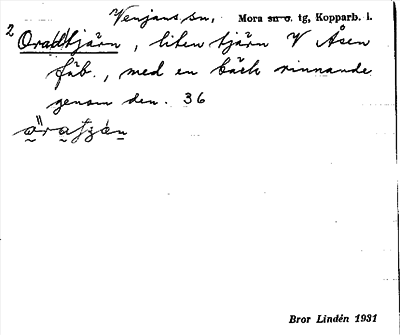 Venjans sn, Mora sn o. tg, Kopparb. l.
2 Oradtjärn, liten tjärn V Åsen
fäb., med en bäck rinnande
genom den. 36
Bror Lindén 1931